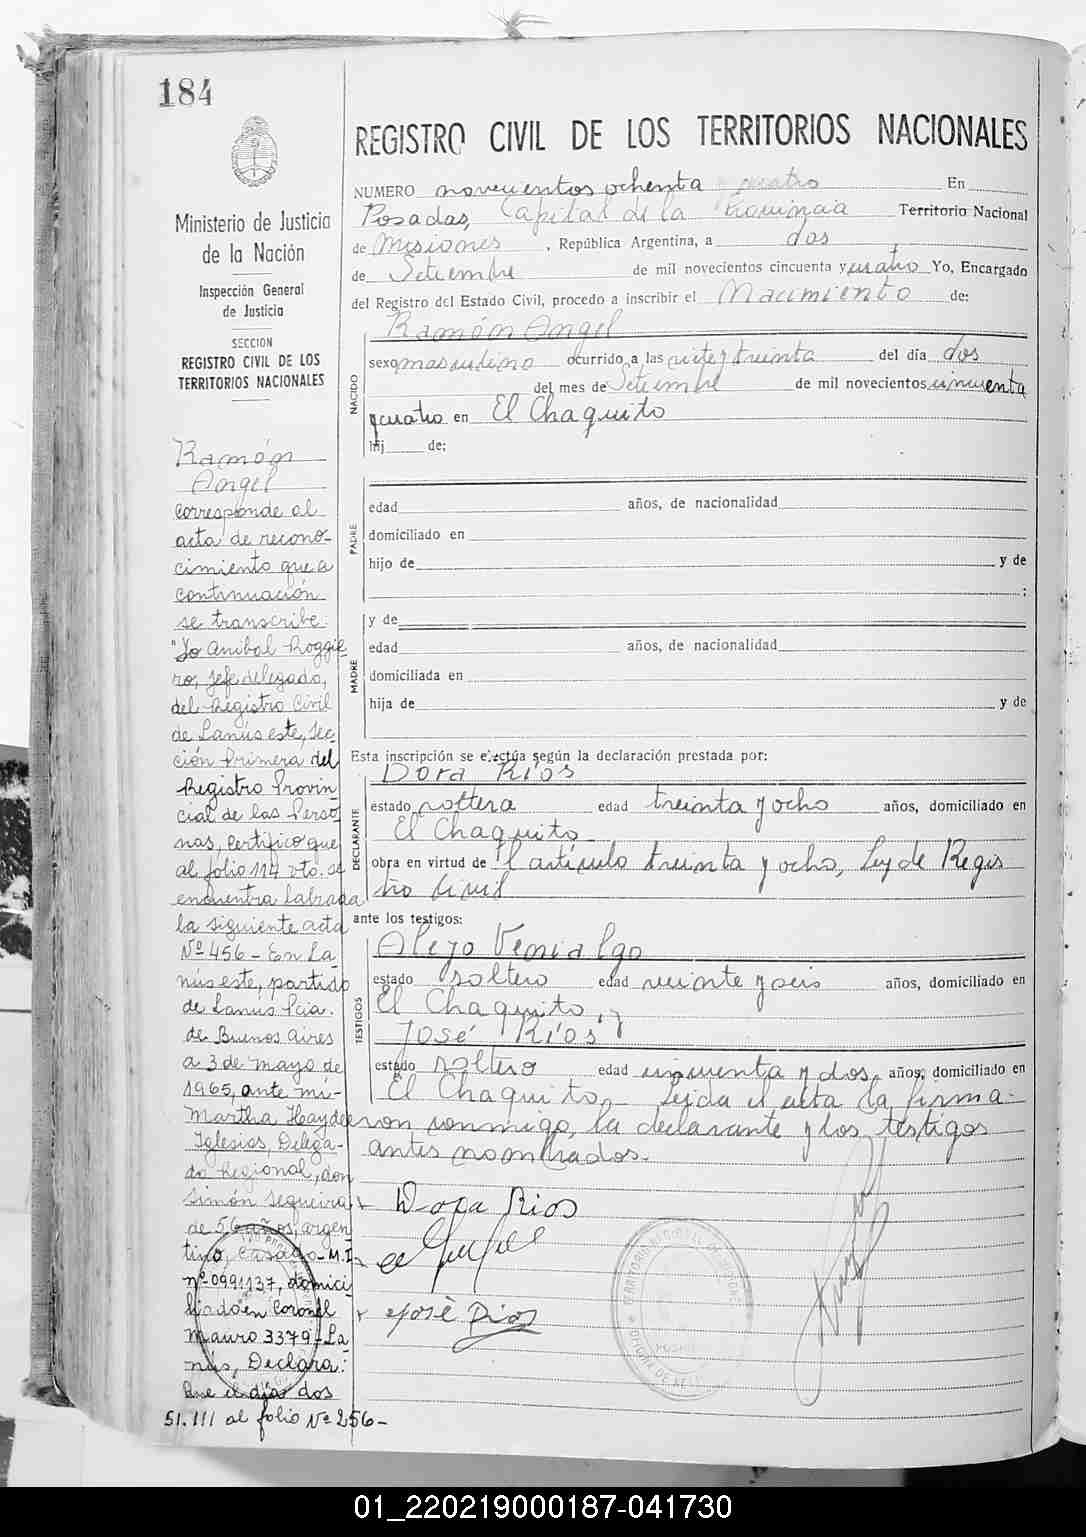 184
Ministerio de Justicia
de la Nación
Inspección General
de Justicia
SECCION
REGISTRO CIVIL DE LOS
TERRITORIOS NACIONALES
Ramón
Angel
corresponde al
acta de recono-
cimiento que a
continuación
se transcribe:
"Yo Anibal Roggie
ro, jefe delegado,
del Registro Civil
de Lanús este, Sec
ción Primera del
Registro Provin
cial de las Perso
nas, certifico que
al folio 114 vto. se
encuentra labrada
la siguiente acta
Nº 456 - En La
nús este, partido
de Lanus Pcia.
de Buenos Aires
a 3 de mayo de
1965, ante mí-
Martha Haydee
Iglesias, Delega-
da Regional, don
Simón Sequeira
de 56 años, argen
tino, casado - M.I.
nº 0991137, domici
liado en Coronel
Mauro 3379 - La
nús, Declara:
Que el día dos
SI. III al folio Nº 256-
REGISTRO CIVIL DE LOS TERRITORIOS NACIONALES
NUMERO novecientos ochenta y cuatro En
Posadas, Capital de la Provincia Territorio Nacional
de Misiones, República Argentina, a dos
de Setiembre de mil novecientos cincuenta y cuatro Yo, Encargado
del Registro del Estado Civil, procedo a inscribir el Nacimiento de:
NACIDO
Ramón Angel
sexo masculino ocurrido a las siete y treinta del día dos
del mes de Setiembre de mil novecientos cincuenta
y cuatro en El Chaquito
hij de:
PADRE
edad años, de nacionalidad
domiciliado en
hijo de y de
;
MADRE
y de
edad años, de nacionalidad
domiciliada en
hija de y de
Esta inscripción se efectúa según la declaración prestada por:
DECLARANTE
Dora Ríos
estado soltera edad treinta y ocho años, domiciliado en
El Chaquito
obra en virtud de el artículo treinta y ocho, Ley de Regis
tro Civil
ante los testigos:
TESTIGOS
Alejo Venialgo
estado soltero edad veinte y seis años, domiciliado en
El Chaquito, y
José Ríos
estado soltero edad cincuenta y dos, años, domiciliado en
El Chaquito.- Leída el acta la firma-
ron conmigo, la declarante y los testigos
antes nombrados.
Dora Rios
José Rios
01_220219000187-041730